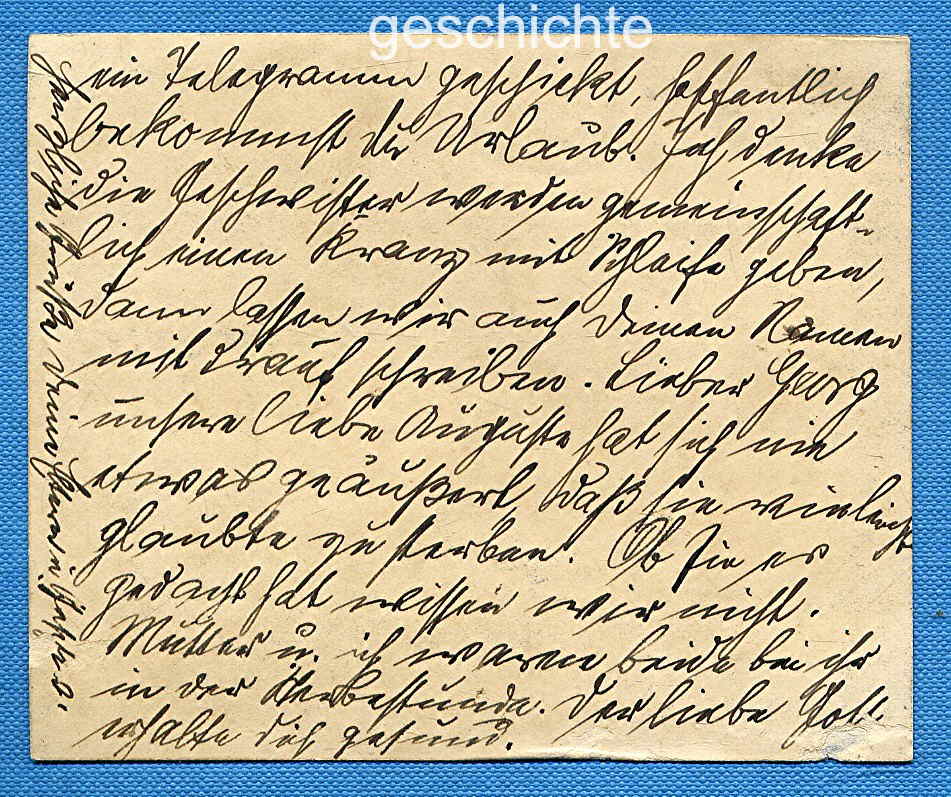 geschichte
ein Telegramm geschickt, hoffentlich
bekommst du Urlaub. Ich denke
die Geschwister werden gemeinschaft-
lich einen Kranz mit Schleife geben,
dann lassen wir auch Deinen Namen
mit drauf schreiben. Lieber Georg
unsere liebe Auguste hat sich nie
etwas geäußert, daß sie vielleicht
glaubte zu sterben. Ob sie es
gedacht hat wissen wir nicht.
Mutter u. ich waren beide bei ihr
in der Sterbestunde. Der liebe Gott
erhalte dich gesund.
Herzliche Grüße Deine